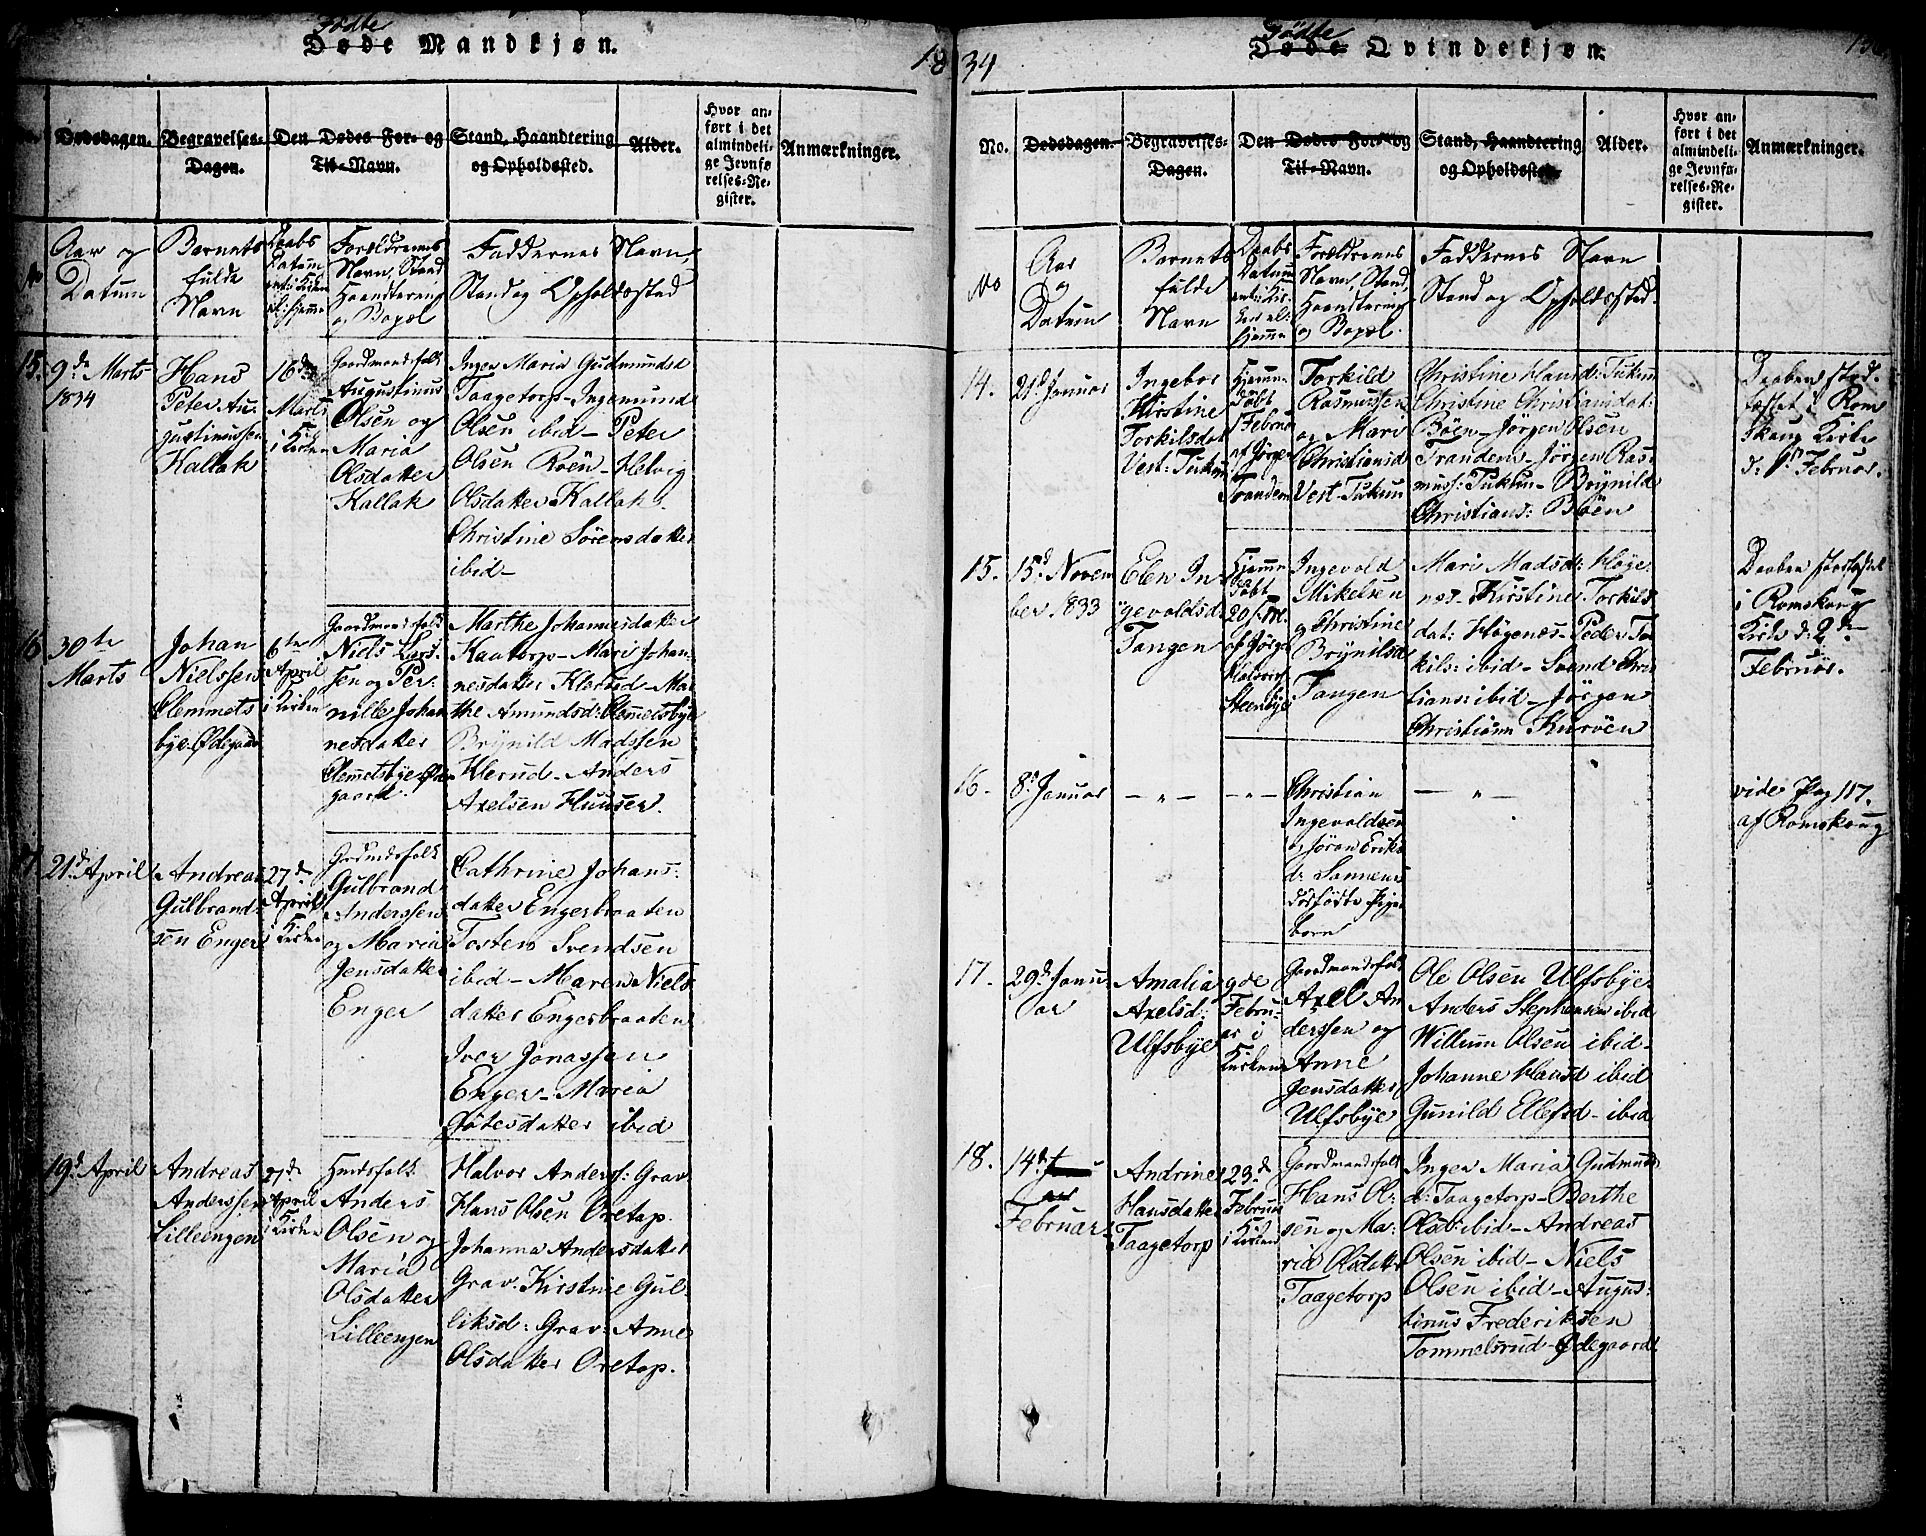 Fødte
Døde Mandkjøn.
18
Dødsdagen.
Begravelses-
Dagen.
Den Dødes For- og
Til-Navn.
Stand, Haandtering
og Opholdssted.
Alder.
Hvor an-
ført i det
almindeli-
ge Jevnfø
relses-Re-
gister.
Anmærkninger.
Aar og
Datum
Barnets
fulde
Navn
Daabs
Datum
enten i Kirken
el: hjemme
Forældrenes
Navn, Stand
Haandtering
og Bopæl
Faddernes Navn,
Stand og Opholdssted
15.
9de Marts
1834
Hans
Peter Au-
gustinussen
Kallak
16de
Marts
i Kirken
Gaardmandsfolk
Augustinus
Olsen og
Maria
Olsdatter
Kallak
Inger Maria Gudmundsd
Taagetorp - Ingemund
Olsen ibid - Peter
Olsen Roën - Helvig
Olsdatter Kallak.
Christine Sörensdatter
ibid -
16
30te
Marts
Johan
Nielssen
Clemmets
bye Ødegaard
6te
April
i Kirken
Gaardmandsfolk
Niels Lars-
sen og Per-
nille Johan
nesdatter
Clemmetsbye Øde
gaard.
Marthe Johannesdatter
Kaatorp - Mari Johan-
nesdatter Klerud - Mar
the Amundsd: Clemmetsbye
Brÿnild Madssen
Klerud - Anders
Axelsen Huuser.
21de April
Andreas
Gulbrand-
sen Enger
27de
April
i Kirken
Grdmdsfolk
Gulbrand
Anderssen
og Maria
Jensdatter
Enger
Cathrine Johans-
datter Engerbraaten
Tosten Svendsen
ibid - Maren Niels
datter Engerbraaten
Iver Jonassen
Enger - Maria
Götesdatter ibid
19de April
Andreas
Anderssen
Lilleengen
27de
April
i Kirken
Huusfolk
Anders
Olsen og
Maria
Olsdatter
Lilleengen
Halvor Anderss: Grav
Hans Olsen Oretop.
Johanna Andersdatter
Grav. Kirstine Gul-
liksd: Grav: Anne
Olsdatter Oretop.
Fødte
Døde Qvindekjøn.
34
No.
Dødsdagen.
Begravelses-
Dagen.
Den Dødes For- og
Til-Navn.
Stand, Haandtering
og Opholdssted.
Alder.
Hvor an-
ført i det
almindeli-
ge Jevnfø-
relses-Re-
gister.
Anmærkninger.
No
Aar
og
Datum
Barnets
fulde
Navn
Daabs
Datum
enten i Kir-
ken el:
hjemme
Forældrenes
Navn, Stand,
Haandtering
og Bopæl.
Faddernes Navn
Stand og Opholdssted.
14.
21d Januar
Ingebor
Kirstine
Torkilsdat
Vest: Tukun
Hjemme
döbt
1 Februar
af Jörgen
Tranden
Torkild
Rasmussen
og Mari
Christiansd
Vest-Tukun
Christine Hansd: Tukun
Christine Christiansdat:
Böen - Jörgen Olsen
Tranden - Jörgen Ras-
muss: Tukun - Brÿnild
Christians: Böen
Daaben stad-
fæstet i Rom
skoug Kirke
d: 1ste Februar.
15.
15d Novem
ber 1833
Elen In-
gevoldsd
Tangen
Hjemme
döbt
20 f. M.
af Jörgen
Halvors
Steenbye
Ingevold
Mikelsen
og Christine
Brÿnilsd
Tangen
Mari Madsd: Höge-
næs - Kirstine Torkils
dat: Högenæs - Peder Tor
kils: ibid - Svend Chris
tians: ibid - Jörgen
Christians Kuröen
Daaben stadfæstet
i Romskoug
Kirke d. 2den
Februar.
16.
8d Januar
- " -
- " -
Christian
Ingevoldsen
og Jöran Eriks
d: Sannens
dødfödte Pige
barn
- " -
vide Pag 117.
af Romskoug
17.
29d Janu
ar
Amalia
Axelsd:
Ulfsbye
9de
Febru-
ar i
Kirken
Gaardmandsfolk
Axel An
derssen og
Anne
Jensdatter
Ulfsbye
Ole Olsen Ulfsbye
Anders Stephensen ibid
Willum Olsen ibid -
Johanne Hansd ibid
Gunild Ellefsd - ibid
18.
14de
Februar
Andrine
Hansdatter
Taagetorp
23d
Februar
i Kirken
Gaardmandsfolk
Hans Ol-
sen og Ma-
ria Olsdatter
Taagetorp
Inger Maria Gudmunds
d: Taagetorp - Berthe
Olsd: ibid - Andreas
Olsen ibid - Niels
Olsen ibid - Augus-
tinus Frederiksen
Tommelsrud - Ødegaard